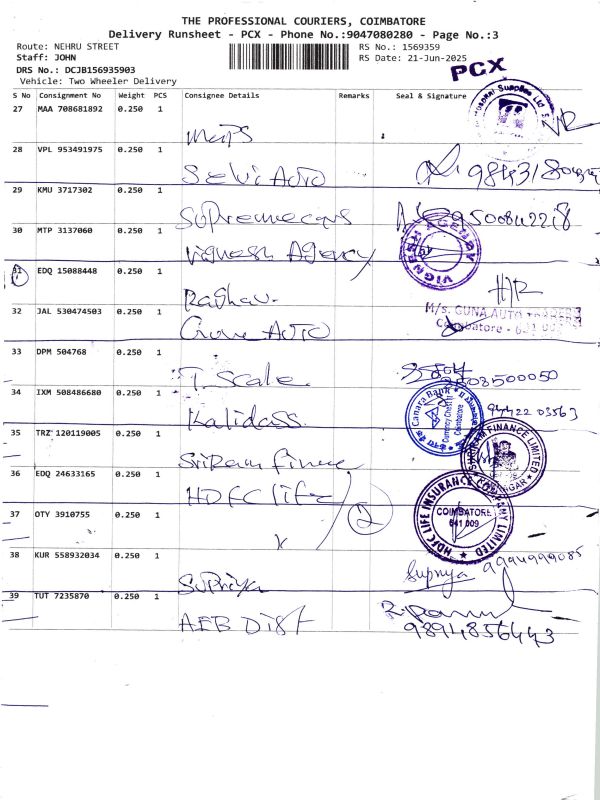 THE PROFESSIONAL COURIERS, COIMBATORE
Delivery Runsheet - PCX - Phone No.:9047080280 - Page No.:3
Route: NEHRU STREET
RS No.: 1569359
Staff: JOHN
RS Date: 21-Jun-2025
DRS No.: DCJB156935903
PCX
Vehicle: Two Wheeler Delivery
S No Consignment No Weight PCS Consignee Details Remarks Seal & Signature
27 MAA 708681892 0.250 1
Maps
28 VPL 953491975 0.250 1
Selvi Auto
29 KMU 3717302 0.250 1
Supreme cars 9500842218
30 MTP 3137060 0.250 1
Vignesh Agency
VIGNESH AGENCY
31 EDQ 15088448 0.250 1
Raghav.
32 JAL 530474503 0.250 1
M/s. GUNA AUTO
Coimbatore - 641 002
Auto
33 DPM 504768 0.250 1
T. Scale
8508500050
34 IXM 508486680 0.250 1
Kalidass
Canara Bank
Currency Chest
Coimbatore
94422 03563
35 TRZ 120119005 0.250 1
Sriram Finance
SHRIRAM FINANCE LIMITED
36 EDQ 24633165 0.250 1
HDFC Life
2
37 OTY 3910755 0.250 1
HDFC LIFE INSURANCE COMPANY LIMITED
COIMBATORE
641 009
38 KUR 558932034 0.250 1
Supriya
Supriya 9994999085
39 TUT 7235870 0.250 1
AEB Dist
9894856443